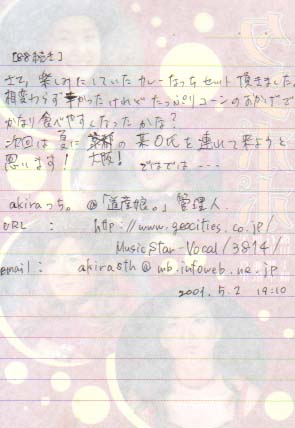 さて、楽しみにしていたカレーなっちセット頂きました。
相変わらず辛かったけれどたっぷりコーンのおかげで
かなり食べやすくなったかな?
次回は夏に の某O氏を連れて来ようと
大阪!
思います! ではでは---
akiraっち。@「道産娘。」管理人
URL : http://www.geocities.co.jp/
MusicStar-Vocal/3814/
email : akirasth@mb.infoweb.ne.jp
2001.5.2 19:10